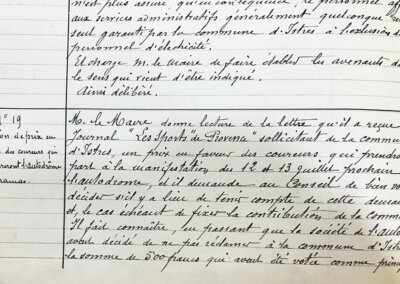 n'est plus assuré, qu'en conséquence, le personnel aff
aux services administratifs généralement quelconque
seul garanti par la commune d'Istres à l'exclusion d
personnel d'électricité.
Et charge M. le Maire de faire établir les avenants d
le sens qui vient d'être indiqué.
Ainsi délibéré.
N° 19
on de prix en
des coureurs qui
l'autodrôme
M. le Maire donne lecture de la lettre qu'il a reçue
Journal "Les Sports de Provence" sollicitant de la commun
d'Istres, un prix en faveur des coureurs qui prendron
part à la manifestation du 12 et 13 Juillet prochain
l'autodrome, et il demande au Conseil de bien vou
décider s'il y a lieu de tenir compte de cette deman
et, le cas échéant de fixer la contribution de la Commu
Il fait connaître, en passant que la société de l'auto
avait décidé de ne pas réclamer à la commune d'Ist
la somme de 500 francs qui avait été votée comme princ